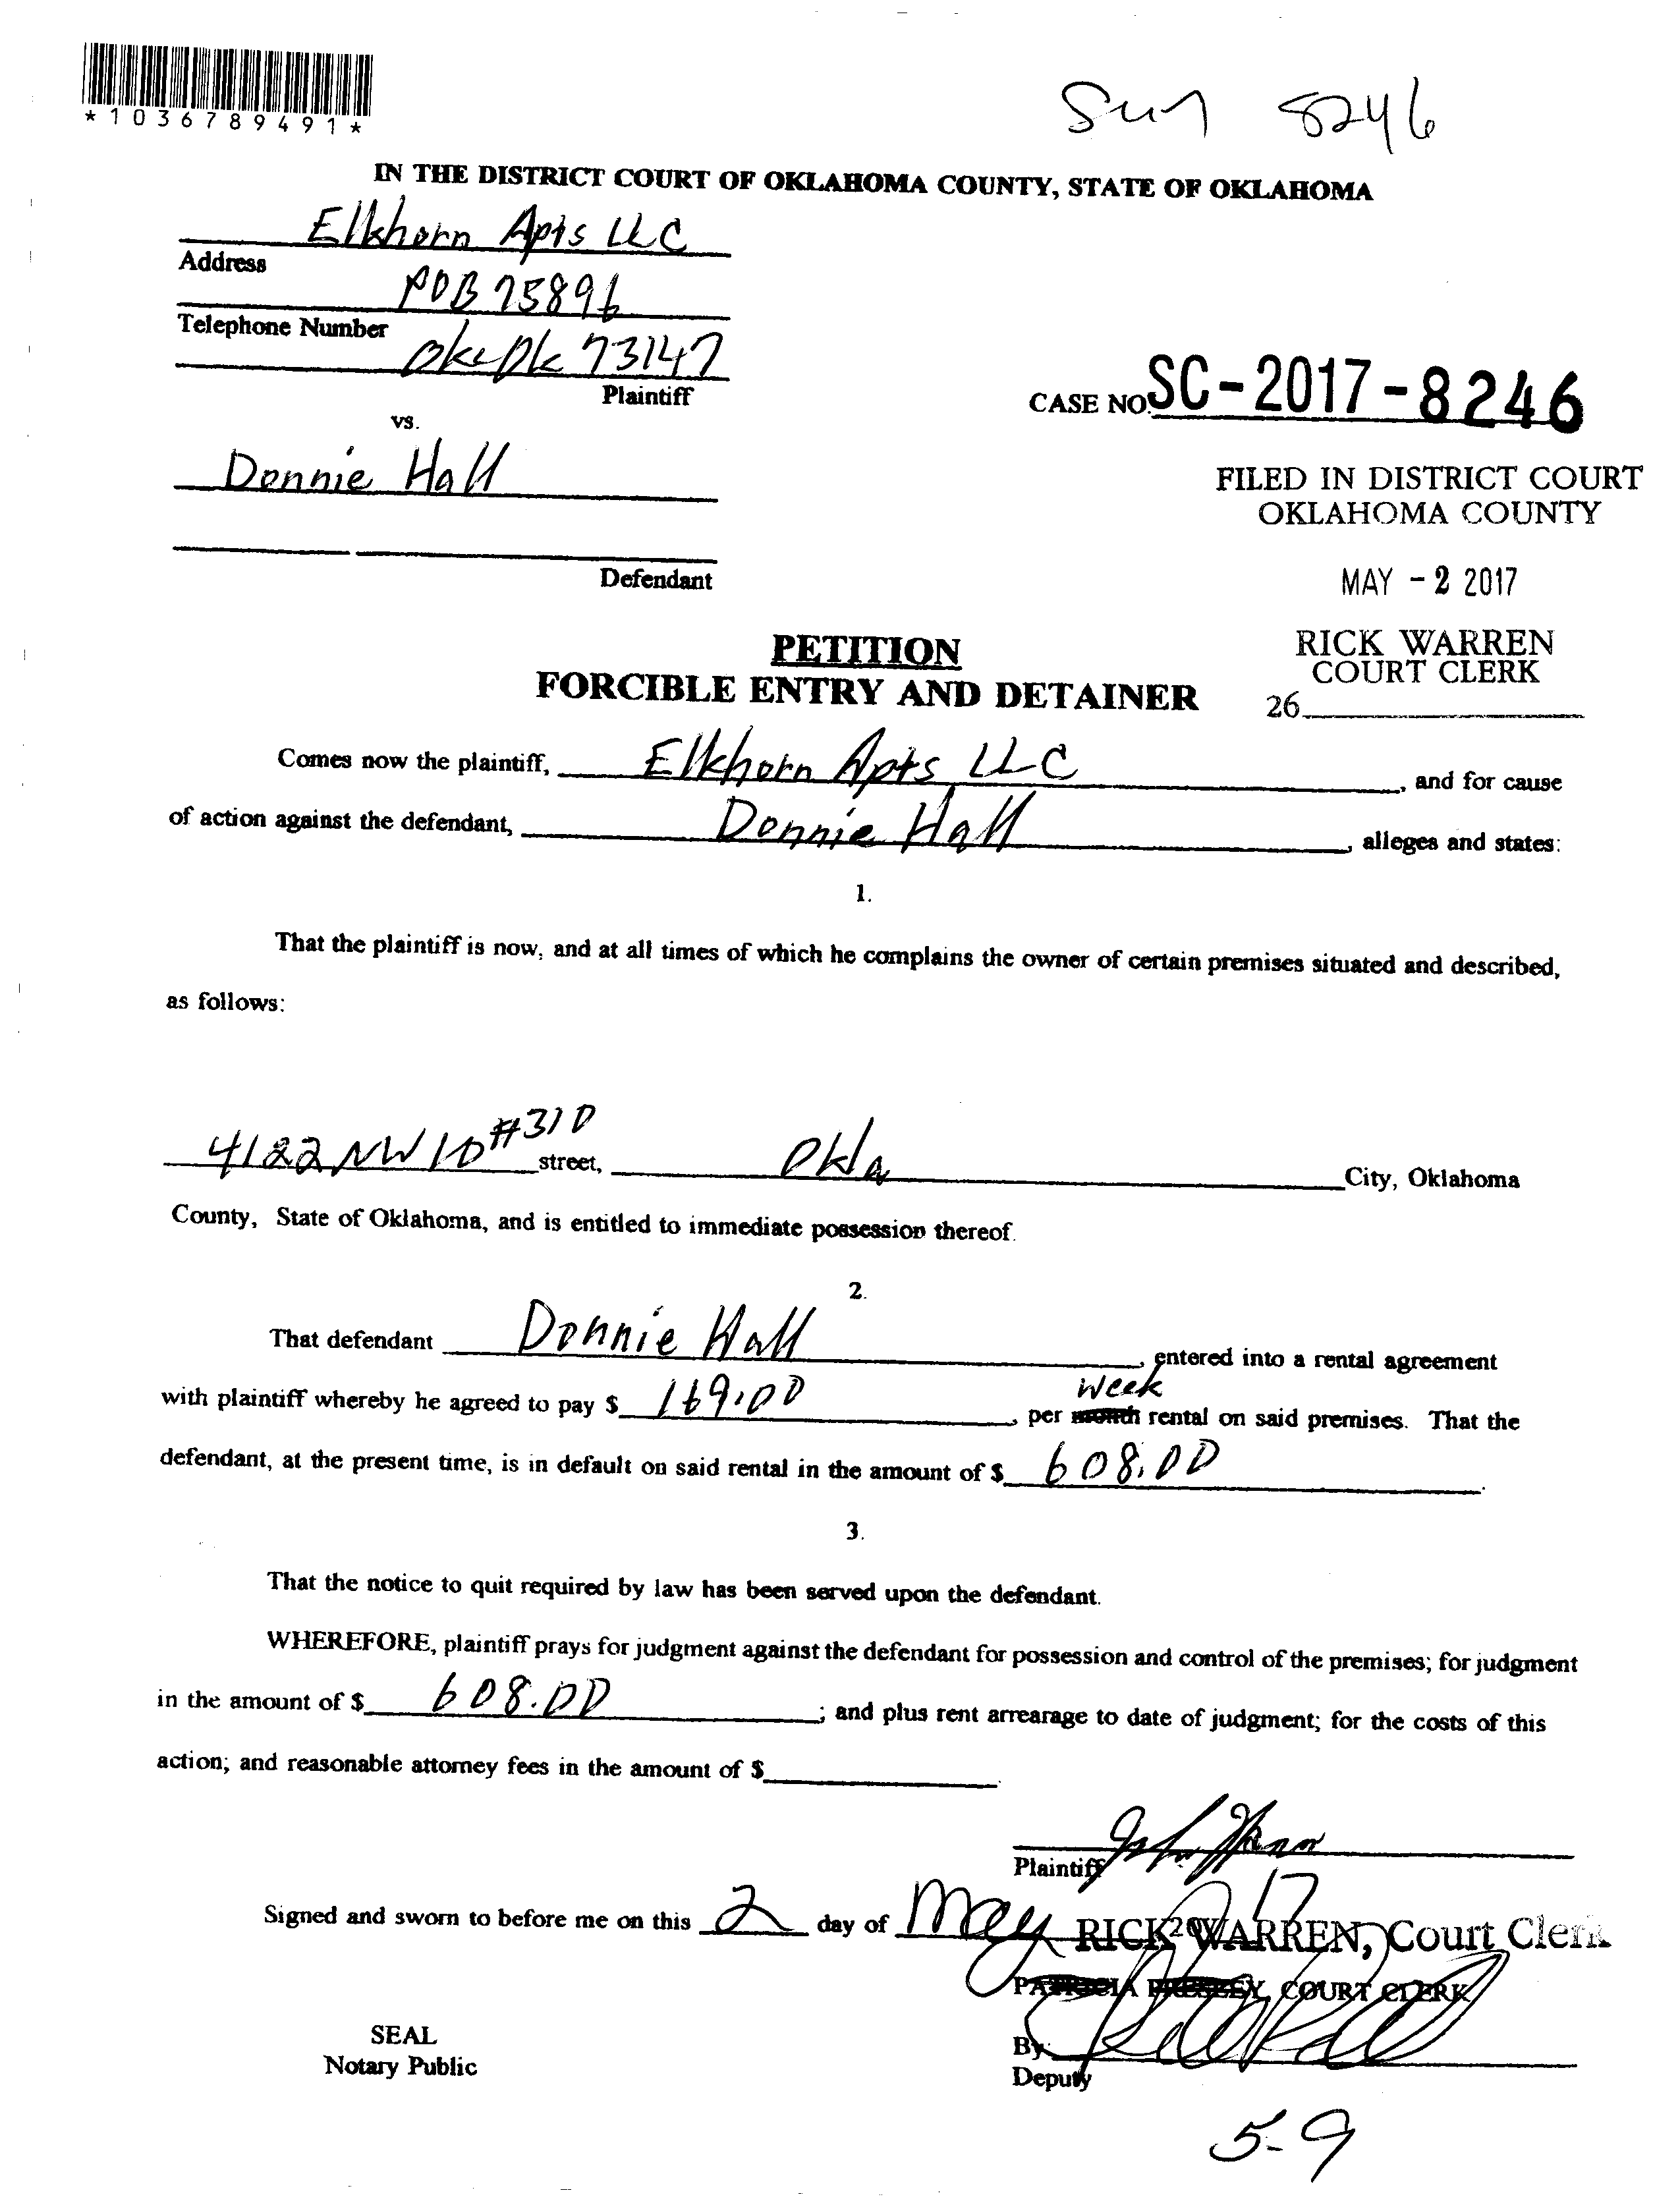 *1036789491*
8246
IN THE DISTRICT COURT OF OKLAHOMA COUNTY, STATE OF OKLAHOMA
Elkhorn Apts LLC
Address
POB 75896
Telephone Number
Okc Ok 73147
Plaintiff
CASE NO. SC-2017-8246
vs.
Donnie Hall
FILED IN DISTRICT COURT
OKLAHOMA COUNTY
Defendant
MAY - 2 2017
PETITION
RICK WARREN
COURT CLERK
FORCIBLE ENTRY AND DETAINER
26
Comes now the plaintiff, Elkhorn Apts LLC, and for cause
of action against the defendant, Donnie Hall, alleges and states:
1.
That the plaintiff is now, and at all times of which he complains the owner of certain premises situated and described,
as follows:
4122 NW 10 #310 street, Okla City, Oklahoma
County, State of Oklahoma, and is entitled to immediate possession thereof.
2.
That defendant Donnie Hall, entered into a rental agreement
with plaintiff whereby he agreed to pay $ 169.00, per month week rental on said premises. That the
defendant, at the present time, is in default on said rental in the amount of $ 608.00.
3.
That the notice to quit required by law has been served upon the defendant.
WHEREFORE, plaintiff prays for judgment against the defendant for possession and control of the premises; for judgment
in the amount of $ 608.00; and plus rent arrearage to date of judgment; for the costs of this
action; and reasonable attorney fees in the amount of $.
Plaintiff
Signed and sworn to before me on this 2 day of May 2017
RICK WARREN, Court Clerk
PATRICIA PRESLEY, COURT CLERK
SEAL
Notary Public
By
Deputy
5-9